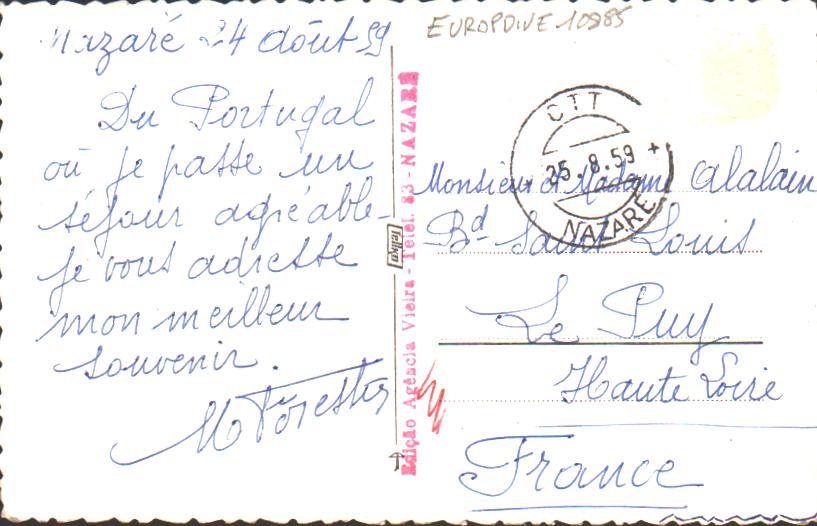 Nazaré 24 août 59
Du Portugal
où je passe un
séjour agréable
je vous adresse
mon meilleur
souvenir.
M Forestier
EUROPDIVE 10985
CTT
25.8.59
NAZARÉ
Monsieur et Madame Alalain
Bd Saint Louis
Le Puy
Haute Loire
France
Edição Agência Vieira - Telef. 83 - NAZARÉ